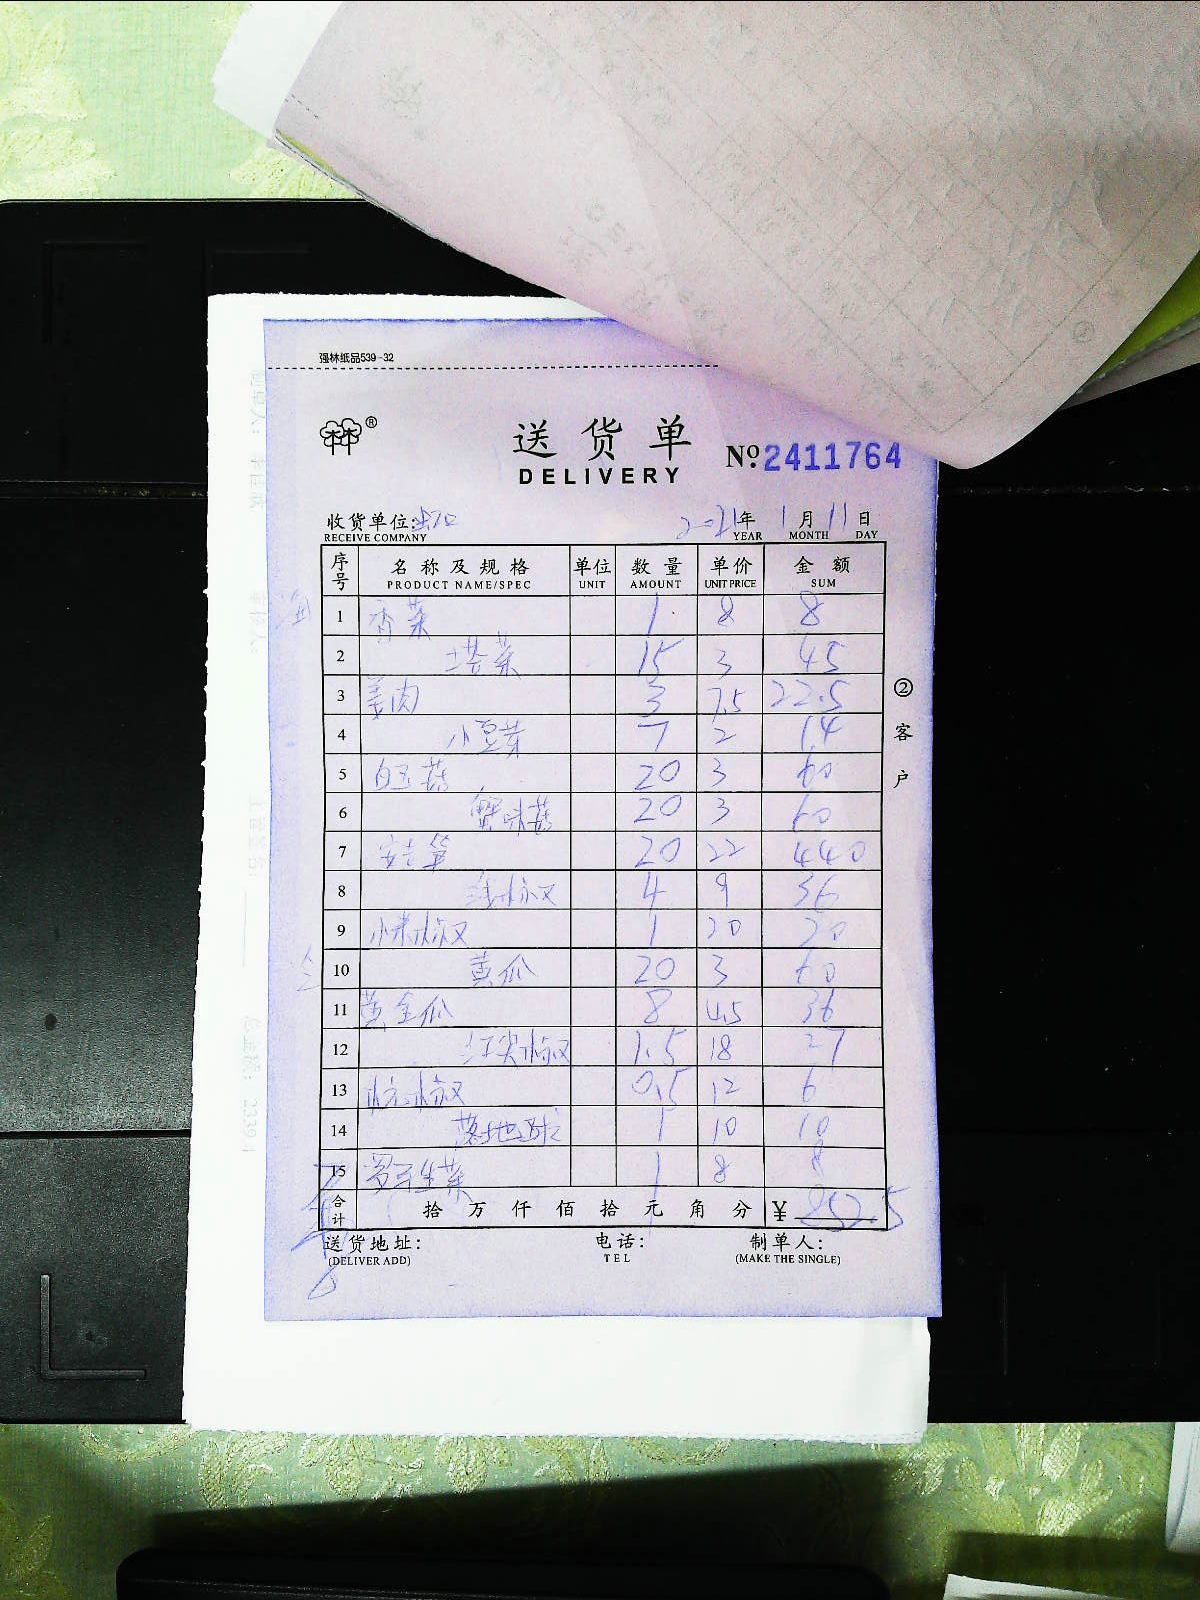 强林纸品539-32
林林®
送货单
DELIVERY
No 2411764
收货单位:
RECEIVE COMPANY
2021年 1月 11日
YEAR MONTH DAY
序号 名称及规格 单位 数量 单价 金额
PRODUCT NAME/SPEC UNIT AMOUNT UNIT PRICE SUM
1 香菜 1 8 8
2 塔菜 15 3 45
3 姜肉 3 7.5 22.5
4 小豆芽 7 2 14
5 白玉菇 20 3 60
6 蟹味菇 20 3 60
7 20 22 440
8 线椒 4 9 36
9 小米椒 1 20 20
10 黄瓜 20 3 60
11 黄金瓜 8 4.5 36
12 红尖椒 1.5 18 27
13 杭椒 0.5 12 6
14 1 10 10
15 罗马生菜 1 8 8
合计 拾 万 仟 佰 拾 元 角 分 ¥ 852.5
送货地址: 电话: 制单人:
(DELIVER ADD) TEL (MAKE THE SINGLE)
②客户